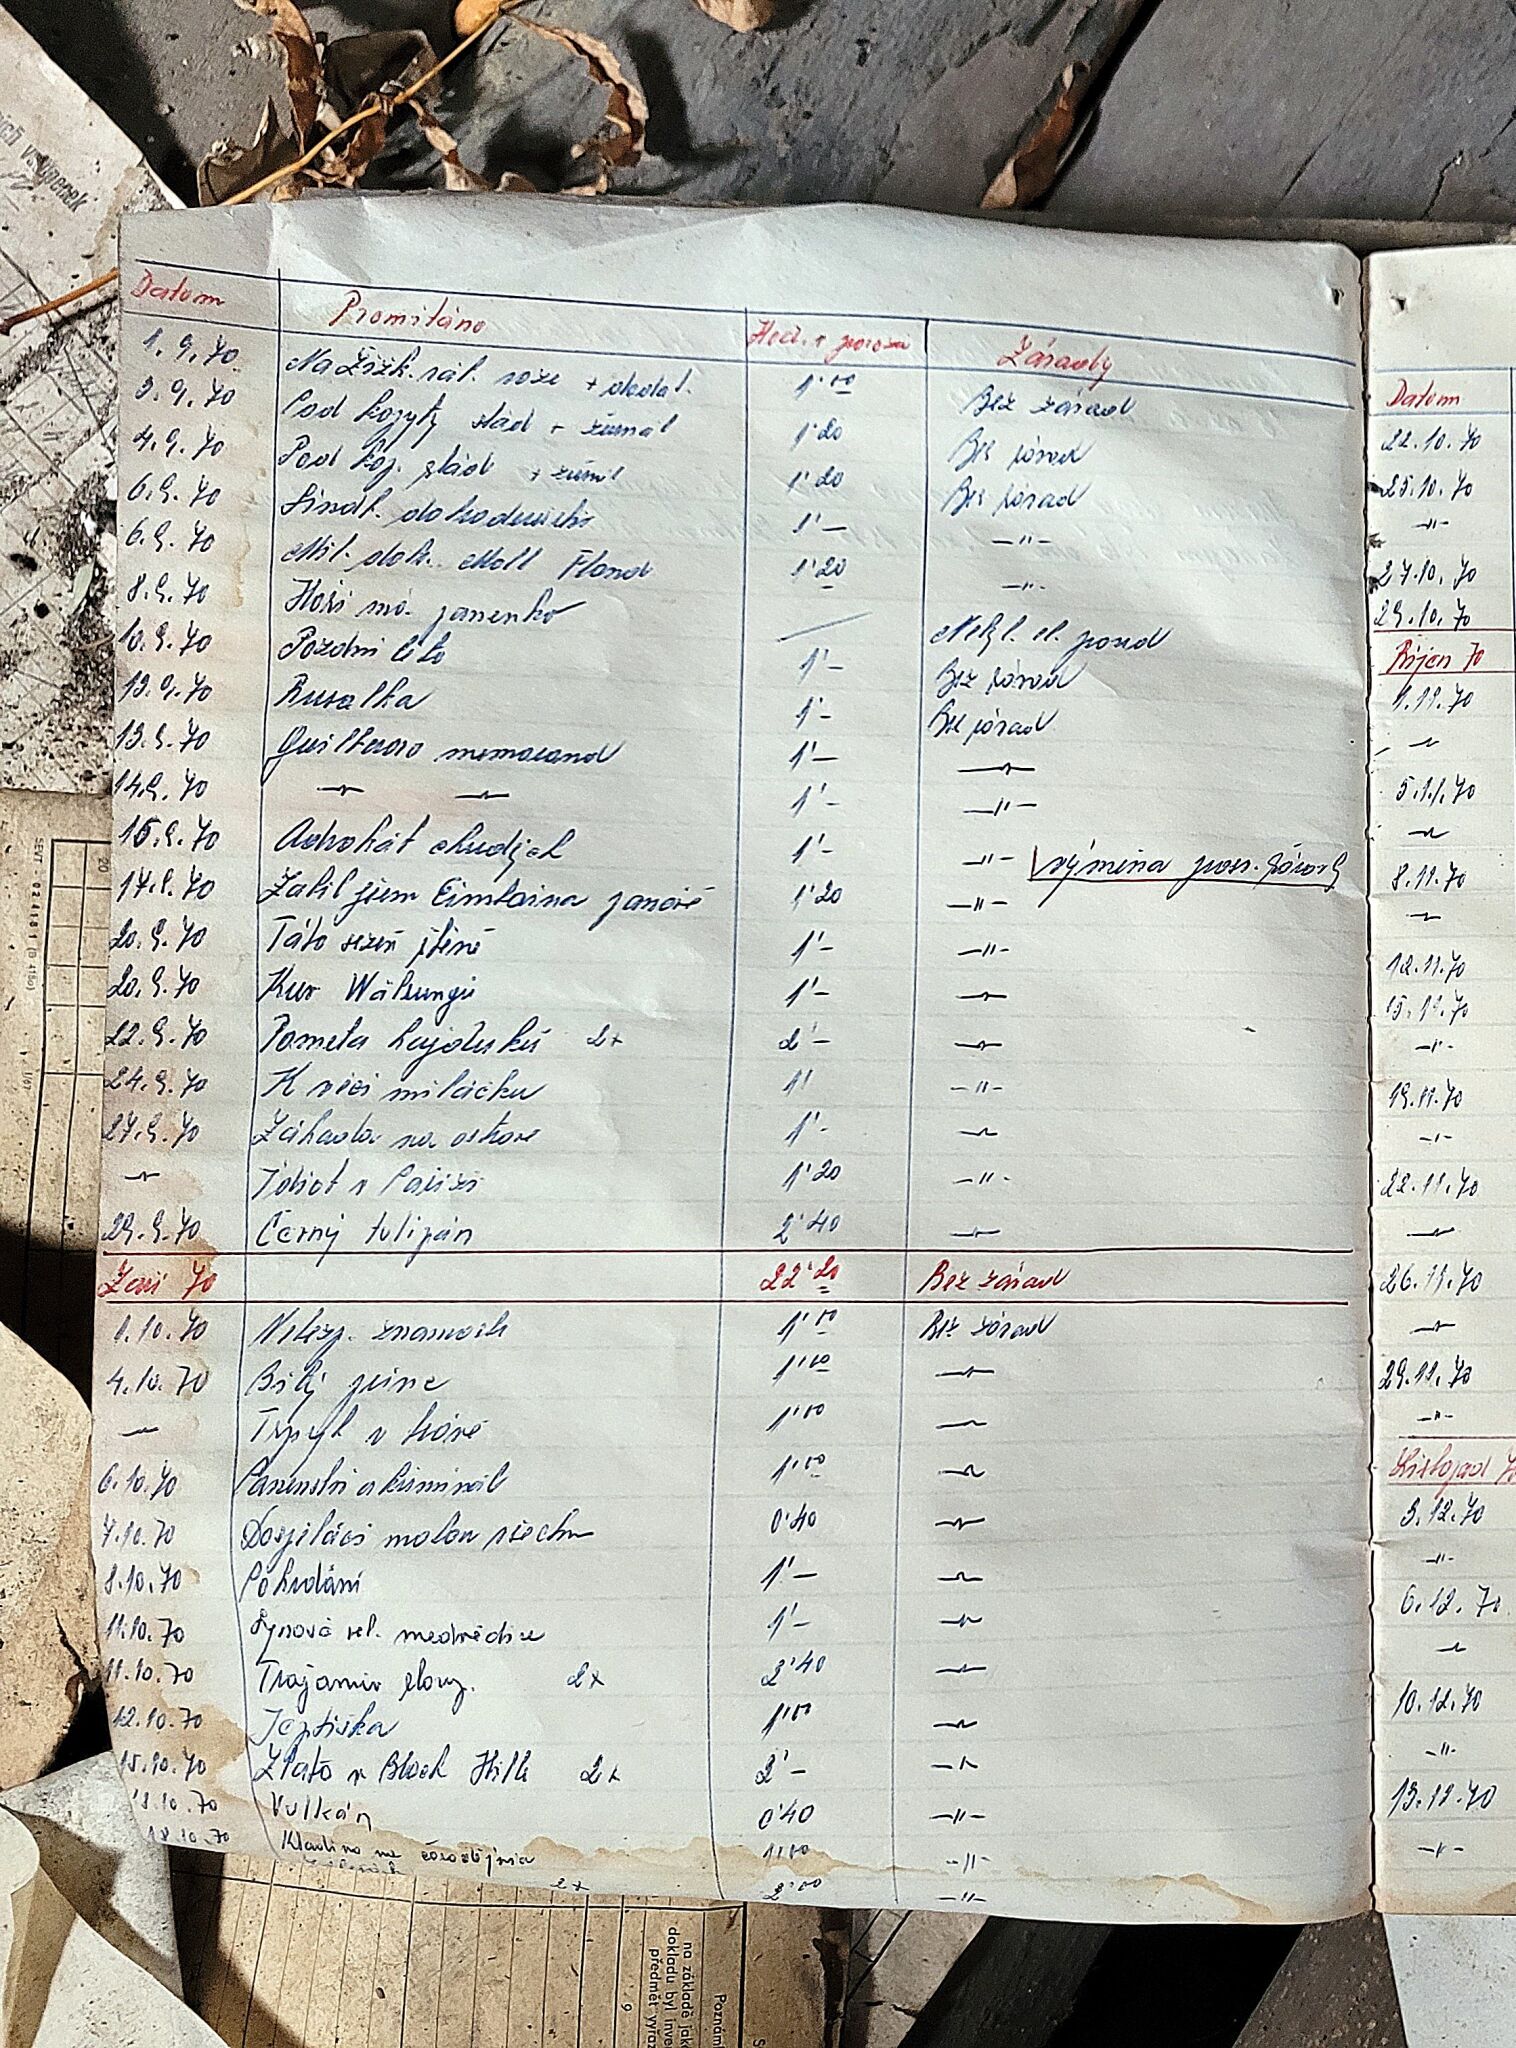 Datum Promítáno Hod. v provozu Závady
1.9.70 + dodat. 1'00 Bez závad
3.9.70 Pod kopyty stád + žurnál 1'20 Bez závad
4.9.70 Pod kop. stád + žurnál 1'20 Bez závad
6.9.70 1'— —"—
6.9.70 Mil. dobr. Moll Fland 1'20 —"—
8.9.70 Hoří má panenko Nebyl el. proud
10.9.70 Pozdní léto 1'— Bez závad
13.9.70 Rusalka 1'— Bez závad
13.9.70 1'— —"—
14.9.70 —"— —"— 1'— —"—
15.9.70 Advokát chudých 1'— —"— výměna
17.9.70 Zabil jsem Einsteina panové 1'20 —"—
20.9.70 Táto sežeň štěně 1'— —"—
20.9.70 Krev Wälsungů 1'— —"—
22.9.70 Pomsta hajducká 2x 2'— —"—
24.9.70 K věci miláčku 1' —"—
27.9.70 Záhada na ostrově 1'— —"—
—"— Idiot v Paříži 1'20 —"—
29.9.70 Černý tulipán 2'40 —"—
Září 70 22'20 Bez závad
1.10.70 Nebezp. známosti 1'00 Bez závad
4.10.70 Bílý 1'00 —"—
—"— v trávě 1'00 —"—
6.10.70 a kriminál 1'00 —"—
7.10.70 Dospěláci mohou všechno 0'40 —"—
8.10.70 Pohrdání 1'— —"—
11.10.70 Synové vel. medvědice 1'— —"—
11.10.70 2x 2'40 —"—
12.10.70 Jeptiška 1'00 —"—
15.10.70 Zlato v Black Hills 2x 2'— —"—
18.10.70 Vulkán 0'40 —"—
18.10.70 Kladivo na čarodějnice 1'00 —"—
2x 2'00 —"—
Datum
22.10.70
25.10.70
—"—
27.10.70
29.10.70
Říjen 70
1.11.70
—"—
5.11.70
—"—
8.11.70
—"—
12.11.70
15.11.70
—"—
19.11.70
—"—
22.11.70
—"—
26.11.70
—"—
29.11.70
—"—
Listopad 70
3.12.70
—"—
6.12.70
—"—
10.12.70
—"—
13.12.70
—"—
SEVT - 02 418 1
20
Poznám
na základě jak
dokladu byl inve
předmět vyřaz
9